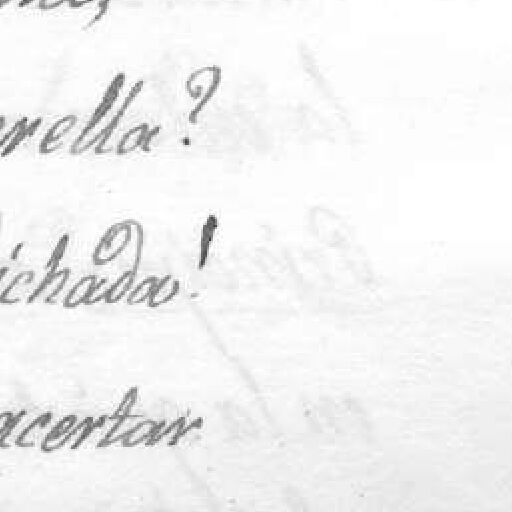 rella?
ichada!
acertar